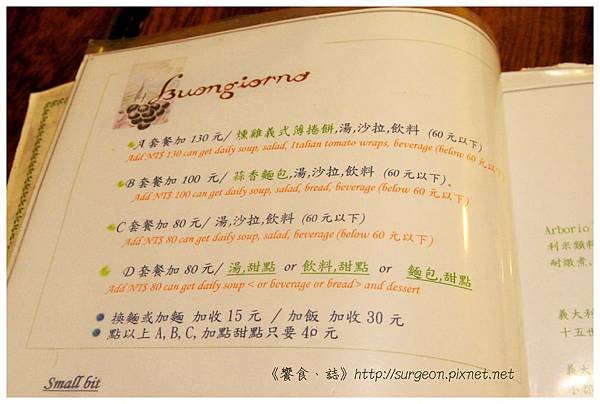 Buongiorno
A套餐加 130元/ 燻雞義式薄捲餅,湯,沙拉,飲料 (60元以下)
Add NT$ 130 can get daily soup, salad, Italian tomato wraps, beverage (below 60元以下)
B套餐加 100 元/ 蒜香麵包,湯,沙拉,飲料 (60元以下)。
Add NT$ 100 can get daily soup, salad, bread, beverage (below 60元以下)
C套餐加 80元/ 湯,沙拉,飲料 (60元以下)
Add NT$ 80 can get daily soup, salad, beverage (below 60元以下)
D套餐加 80元/ 湯,甜點 or 飲料,甜點 or 麵包,甜點
Add NT$ 80 can get daily soup < or beverage or bread> and dessert
換麵或加麵 加收 15元 / 加飯 加收 30 元
點以上 A,B,C,加點甜點只要 40元
Small bit
Arborio
利米類
耐燉煮。
義大利
十五世
義大
小都
《饗食‧誌》http://surgeon.pixnet.net